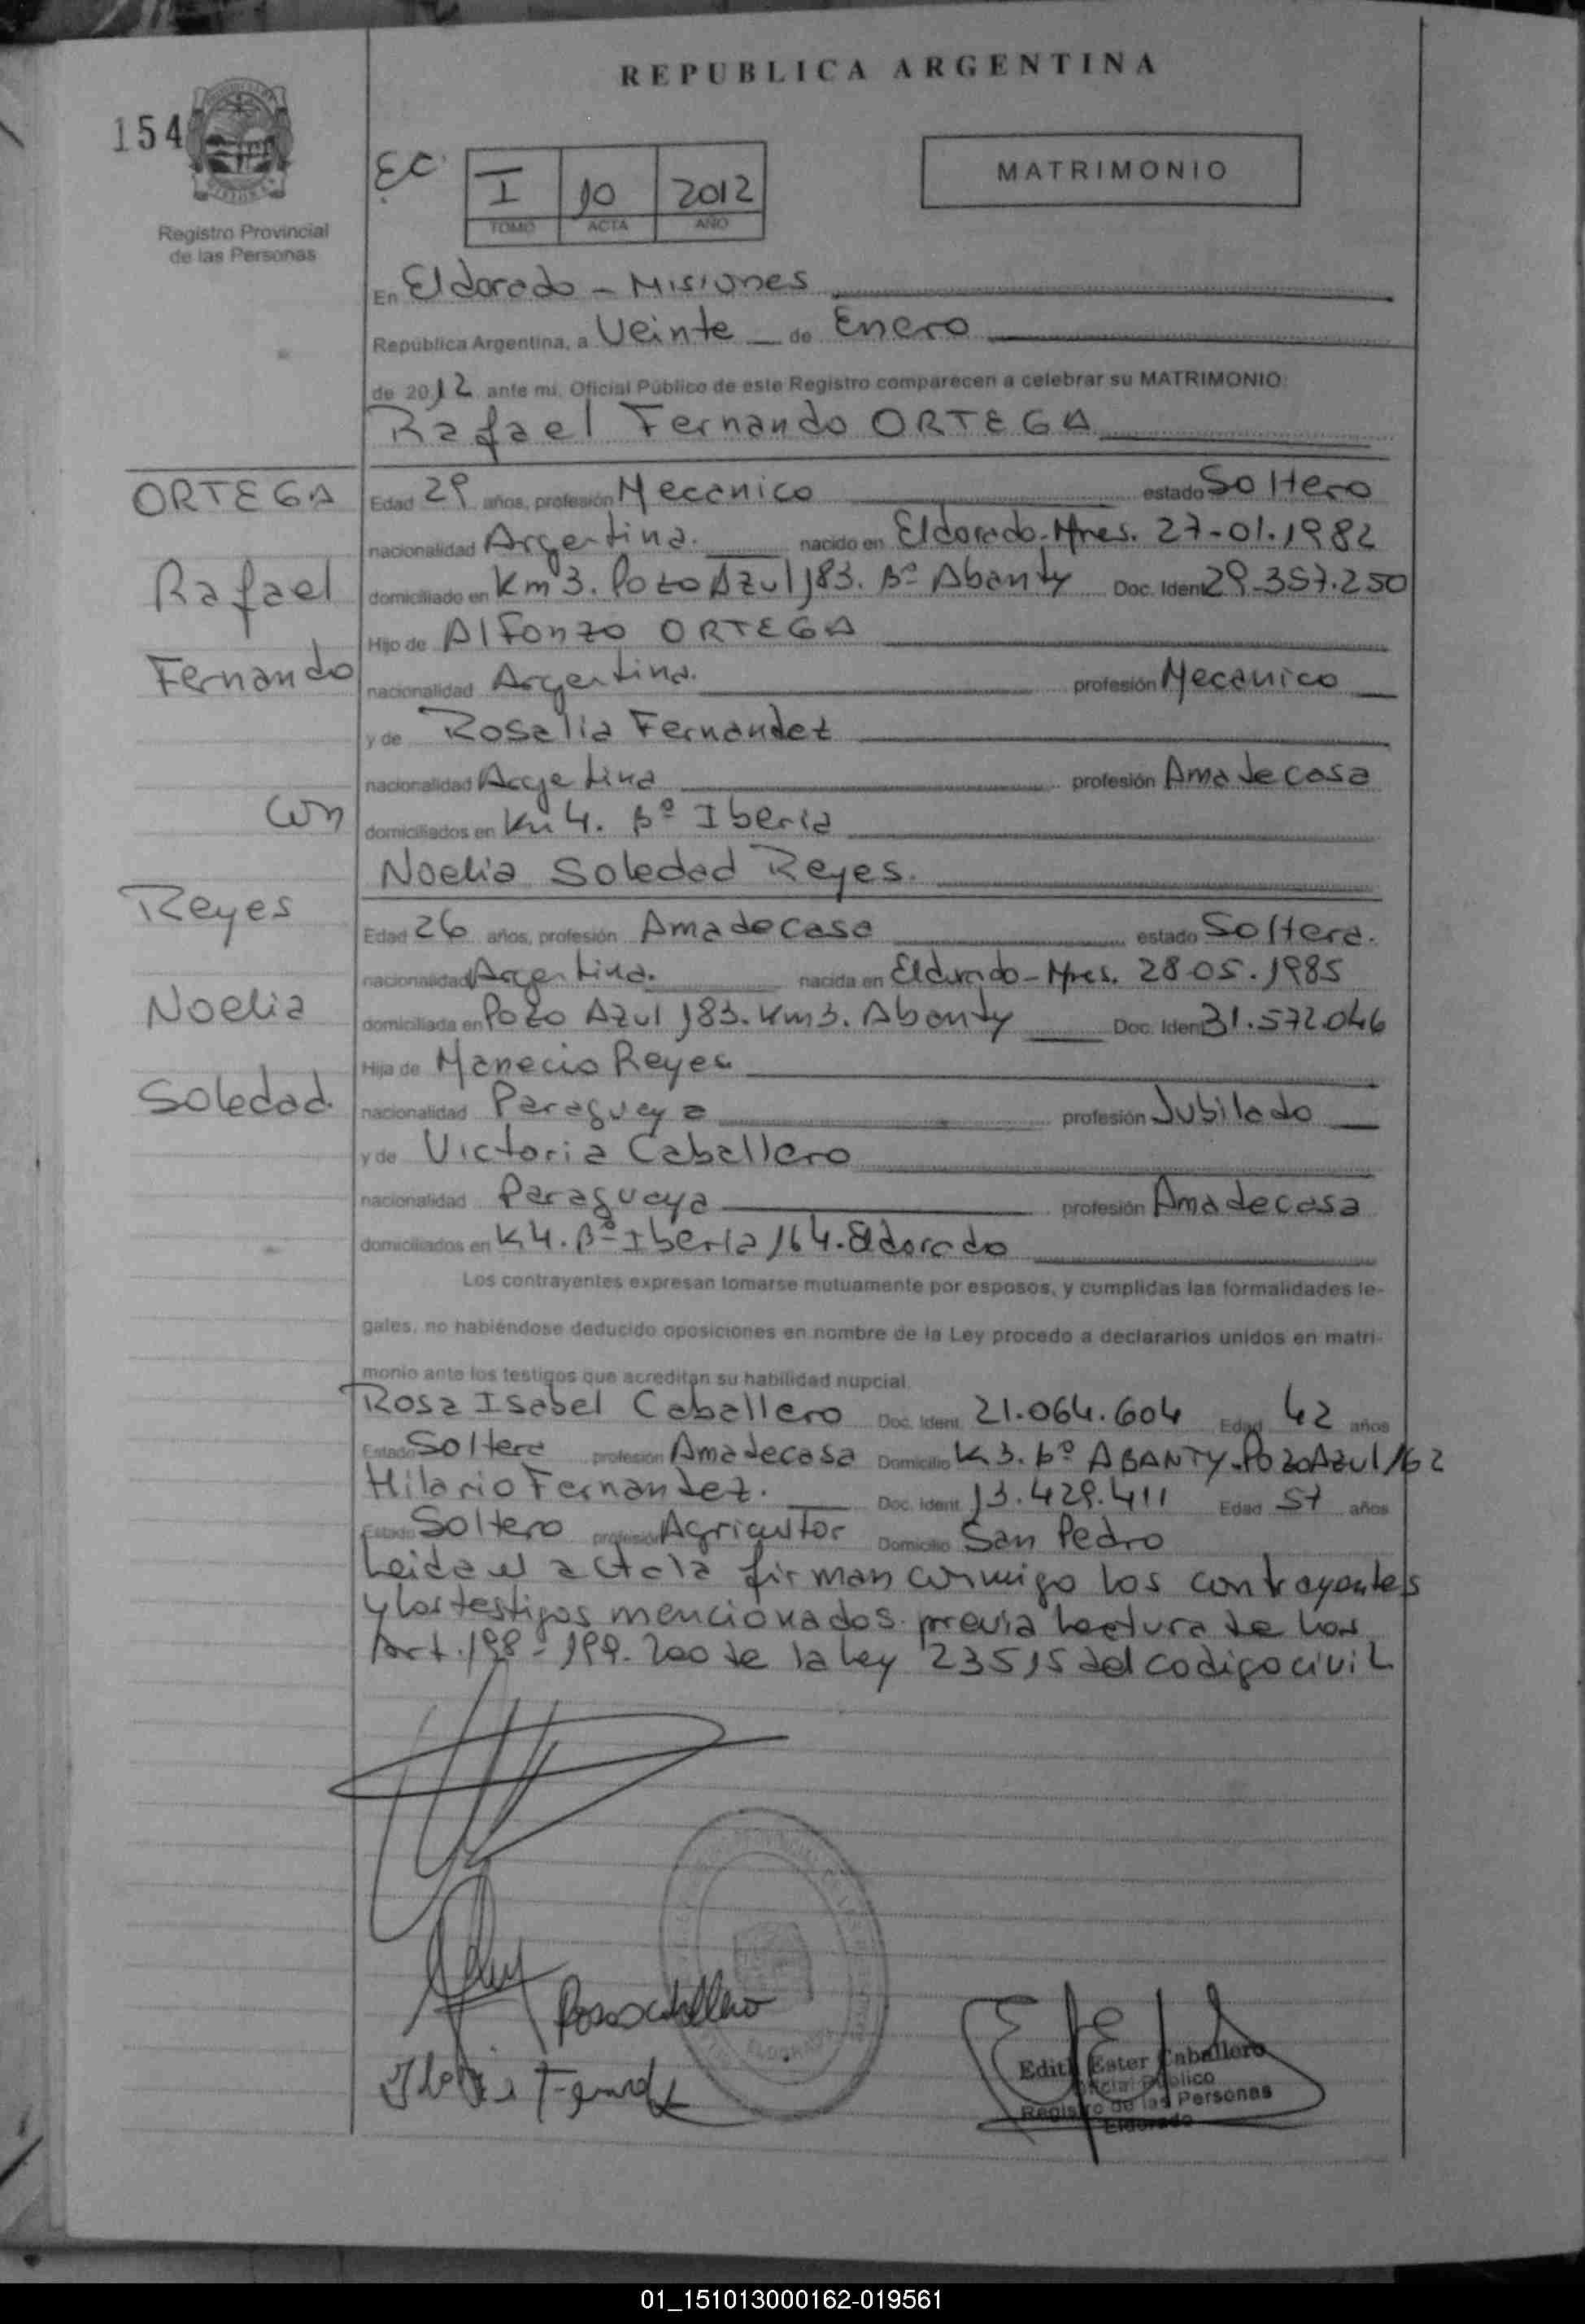 REPUBLICA ARGENTINA
154
Registro Provincial
de las Personas
EC
I 10 2012
TOMO ACTA AÑO
MATRIMONIO
En Eldorado - Misiones
República Argentina, a Veinte de Enero
de 2012 ante mi, Oficial Público de este Registro comparecen a celebrar su MATRIMONIO:
Rafael Fernando ORTEGA
ORTEGA
Rafael
Fernando
con
Reyes
Noelia
Soledad
Edad 29 años, profesión Mecanico estado Soltero
nacionalidad Argentina. nacido en Eldorado-Mnes. 27-01.1982
domiciliado en Km 3. Pozo Azul 183. Bº Abanty Doc. Ident 29.357.250
Hijo de Alfonzo ORTEGA
nacionalidad Argentina. profesión Mecanico
y de Rosalia Fernandez
nacionalidad Argentina profesión Ama de casa
domiciliados en Km 4. Bº Iberia
Noelia Soledad Reyes.
Edad 26 años, profesión Ama de casa estado Soltera.
nacionalidad Argentina. nacida en Eldorado-Mnes. 28-05.1985
domiciliada en Pozo Azul 183. Km3. Abanty Doc. Ident 31.572.046
Hija de Manecio Reyes
nacionalidad Paraguaya profesión Jubilado
y de Victoria Caballero
nacionalidad Paraguaya profesión Ama de casa
domiciliados en K4. Bº Iberia 164. Eldorado
Los contrayentes expresan tomarse mutuamente por esposos, y cumplidas las formalidades le-
gales, no habiéndose deducido oposiciones en nombre de la Ley procedo a declararlos unidos en matri-
monio ante los testigos que acreditan su habilidad nupcial.
Rosa Isabel Caballero Doc. Ident. 21.064.604 Edad 42 años
Estado Soltera profesión Ama de casa Domicilio K 3. bº ABANTY. Pozo Azul 162
Hilario Fernandez. Doc. Ident 13.429.411 Edad 57 años
Estado Soltero profesión Agricultor Domicilio San Pedro
Leida el acta la firman conmigo los contrayentes
y los testigos mencionados previa lectura de los
Art. 198 - 199. 200 de la Ley 23515 del codigo civil
Rosa Caballero
ELDORADO
Edith Ester Caballero
Oficial Público
Registro de las Personas
Eldorado
01_151013000162-019561